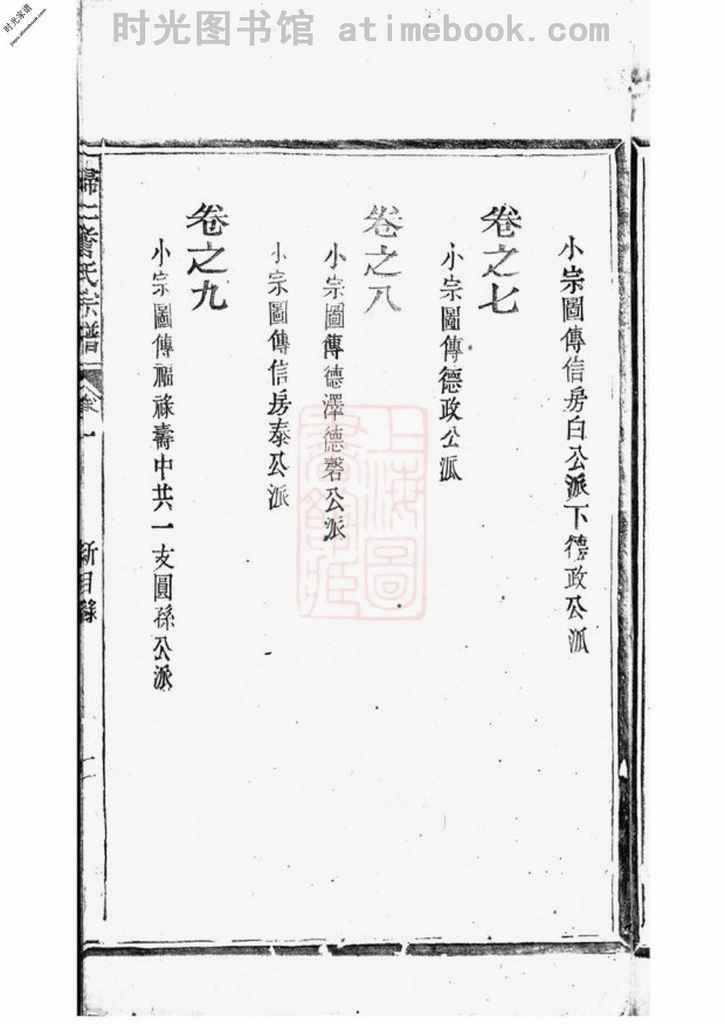 时光图书馆 atimebook.com
时光家谱
小宗圖傳信房白公派下德政公派
卷之七
小宗圖傳德政公派
卷之八
小宗圖傳德澤德磬公派
小宗圖傳信房泰公派
卷之九
小宗圖傳福祿壽中共一支圓孫公派
歸仁 氏宗譜
卷一
新目錄
上海圖